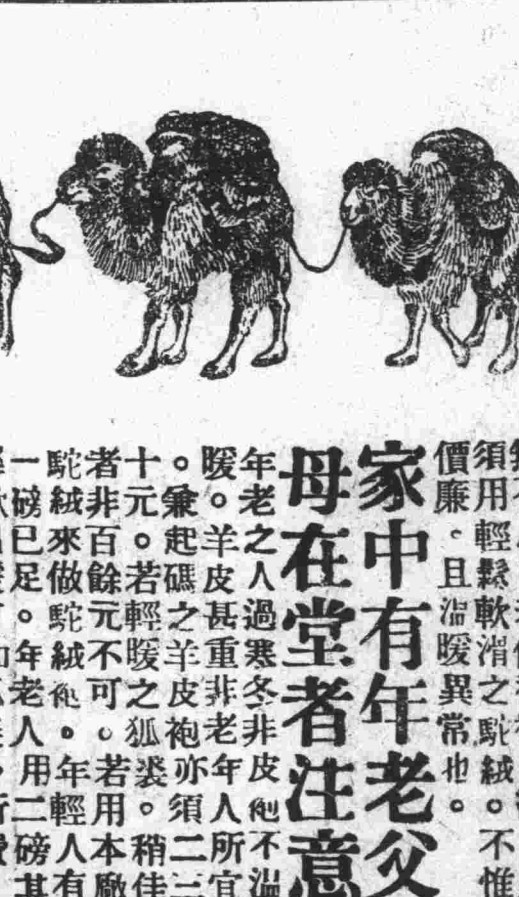 須用輕鬆軟滑之駝絨。不惟
價廉。且溫暖異常也。
家中有年老父
母在堂者注意
年老之人過寒冬非皮袍不溫
暖。羊皮甚重非老年人所宜
。兼起碼之羊皮袍亦須二三
十元。若輕暖之狐裘。稍佳
者非百餘元不可。若用本廠
駝絨來做駝絨袍。年輕人有
一磅已足。年老人用二磅其